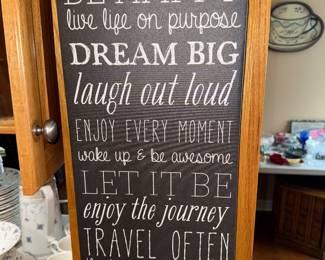 BE HAPPY
live life on purpose
DREAM BIG
laugh out loud
ENJOY EVERY MOMENT
wake up & be awesome
LET IT BE
enjoy the journey
TRAVEL OFTEN